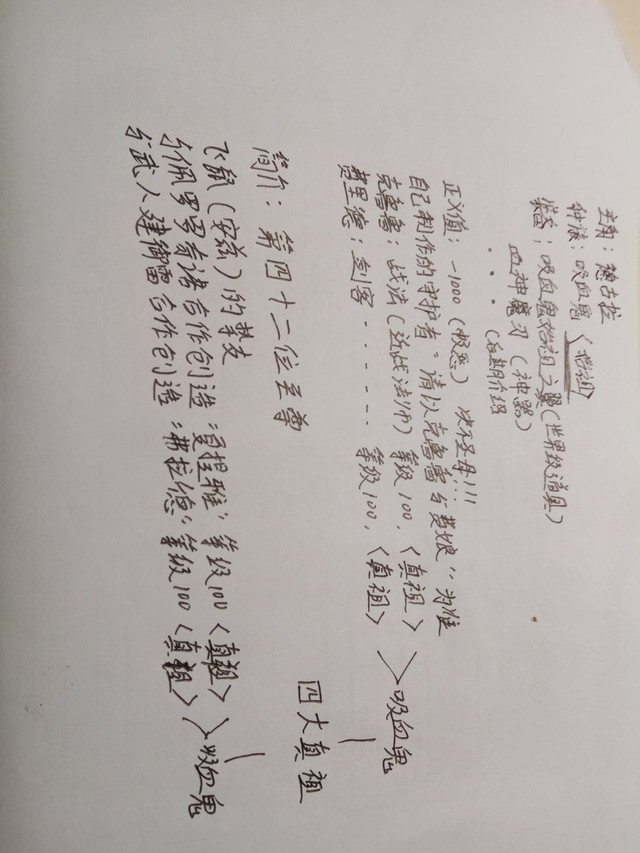 主角：德古拉
种族：吸血鬼〈始祖〉
装备：吸血鬼始祖之翼（世界级道具）
血神魔刃（神器）
...（后期介绍
正义值：-1000（极恶）决不圣母!!!
自己制作的守护者。请以克鲁鲁与费娘“为准
克鲁鲁：战法（近战法师）等级100.〈真祖〉
费里德：剑客....... 等级100.〈真祖〉
吸血鬼
四大真祖
简介：第四十二位至尊
飞鼠（安兹）的挚友
与佩罗罗奇诺合作创造“夏提雅”等级100〈真祖〉
与武人建御雷合作创造“弗拉德”等级100〈真祖〉
吸血鬼